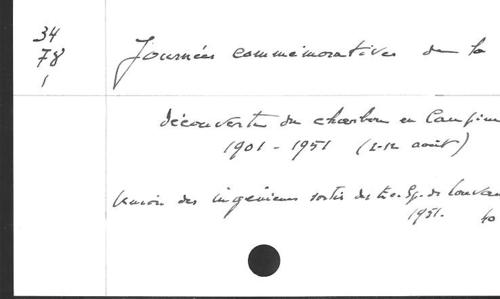 34
78
1
Journées commémoratives de la
découverte du charbon en Campine
1901 - 1951 (2-12 août)
Union des ingénieurs sortis des Ec. Sp. de Louvain
1951. 40